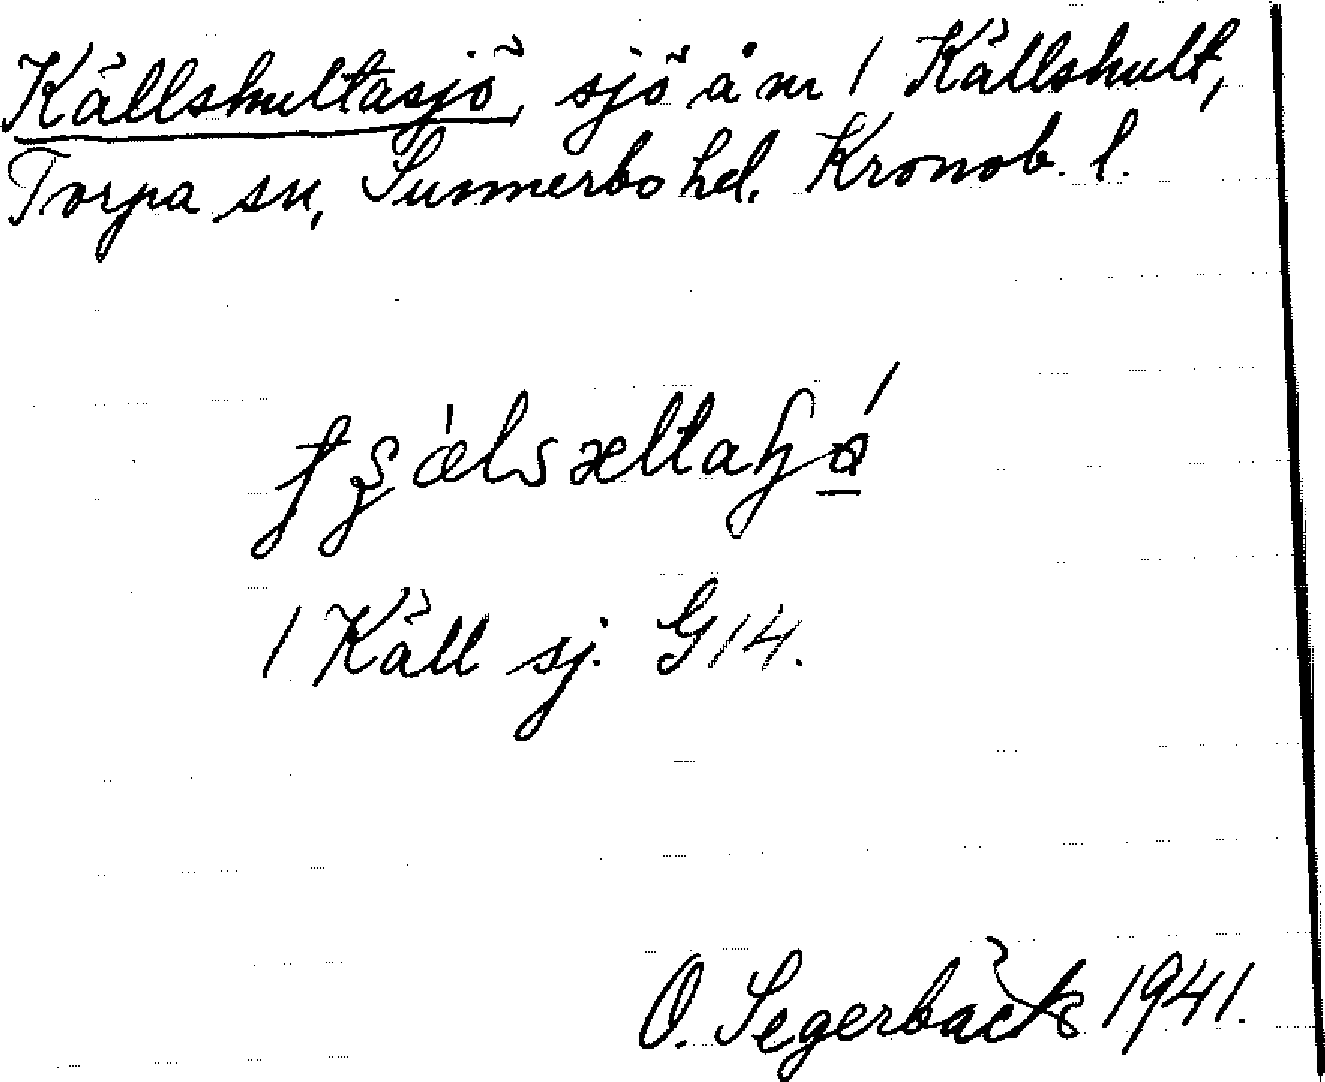 Källshultasjö, sjö å m / Källshult,
Torpa sn, Sunnerbo hd. Kronob. l.
/ Käll sj. G14.
O. Segerbäck 1941.